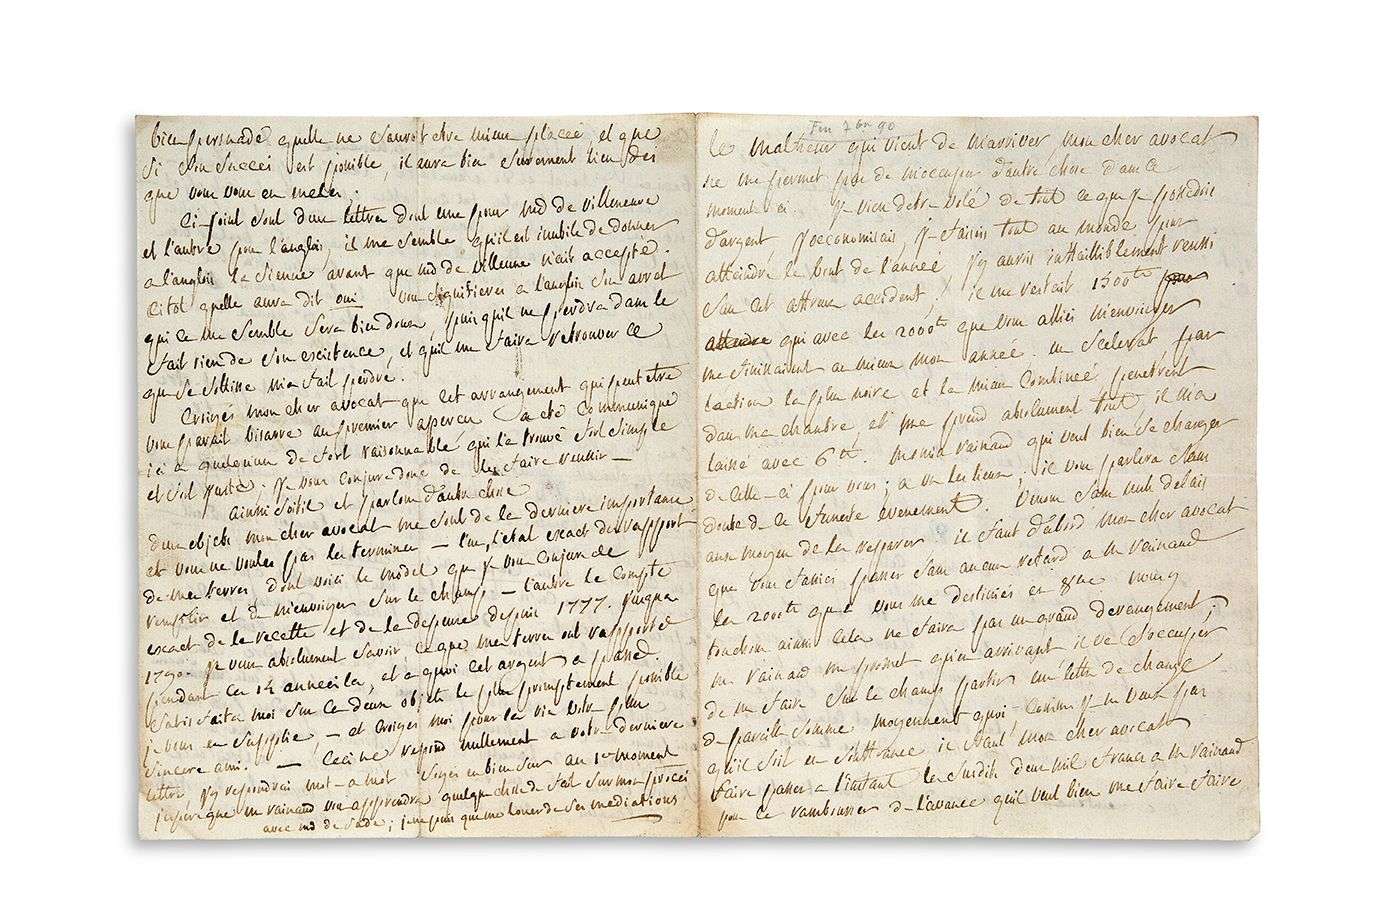 bien persuadé quelle ne sauroit etre mieux placée et que
si son succès est possible, il aura bien surement lieu dès
que vous vous en melez.
Ci joint sont deux lettres dont une pour md de villeneuve
et l'autre pour l'anglois, il me semble qu'il est inutile de donner
a l'anglois la sienne avant que md de villeneuve n'ait accepté.
sitot quelle aura dit oui vous signifierez a l'anglois son arret
qui ce me semble sera bien doux, puis qu'il ne perdra dans le
fait rien de son existence, et qu'il me faire retrouver ce
que sa sottise m'a fait perdre.
Croiyés mon cher avocat que cet arrangement qui peut etre
vous parait bisarre au premier apercu a eté communiqué
ici a quelquun de fort raisonnable qui l'a trouvé fort simple
et fort juste. je vous conjure donc de les faire reussir —
ainsi soitil et parlons d'autre chose
deux objets mon cher avocat me sont de la derniere importance
et vous ne voulés pas les terminer — l'un, l'etat exact du rapport
de mes terres dont voici le model que je vous conjure de
remplir et d m'envoiyer sur le champ — l'autre le compte
exact de la recette et de la depense depuis 1777. jusqua
1790. je veux absolument savoir ce que mes terres ont rapporté
pendant ces 14 années la, et a quoi cet argent a passé
satisfaites moi sur ces deux objets le plus promptement possible
je vous en supplie, — et croiyes moi pour la vie votre plus
sincere ami. — Ceci ne repond nullement a votre derniere
lettre j'y repondrai mot-a-mot soiyés en bien sur au 1er moment
j'espère que mr rainaud vous apprendra quelque chose de fait sur mon procès
avec md de sade; je ne puis que me louer de ses mediations
Fin 7bre 90
le malheur qui vient de m'arriver mon cher avocat
ne me permet pas de m'occuper d'autre chose dans ce
moment-ci. je viens detre volé de tout ce que je possedois
d'argent j'economisais je faisois tout au monde pour
atteindre le bout de l'année j'y aurois infailliblement reussi
sans cet affreux accident, il me restait 1500tt pour
attendre qui avec les 2000tt que vous alliés m'envoiyer
me finissaient au mieux mon année. un scelerat par
l'action la plus noire et la mieux combinée penetrent
dans ma chambre, et me prend absolument tout, il m'a
laissé avec 6tt. monsieur rainaud qui veut bien se charger
de celle-ci pour vous; a vu les lieux, il vous parlera sans
doute de ce funeste evenement. Venons sans nuls delais
aux moyens de les reparer il faut d'abord mon cher avocat
que vous fassiés passer sans aucun retard a mr rainaud
les 2000tt que vous me destiniés en 8bre nous y
touchons ainsi cela ne faira pas un grand derangement;
mr rainaud me promet qu'en arrivant il va s'occuper
de me faire sur le champ partir une lettre de change
de pareille somme moyennant quoi, comme je ne veux pas
qu'il soit en souffrance il faut mon cher avocat
faire passer a l'instant les susdits deux mil francs a mr rainaud
pour se rembourser de l'avance qu'il veut bien me faire faire